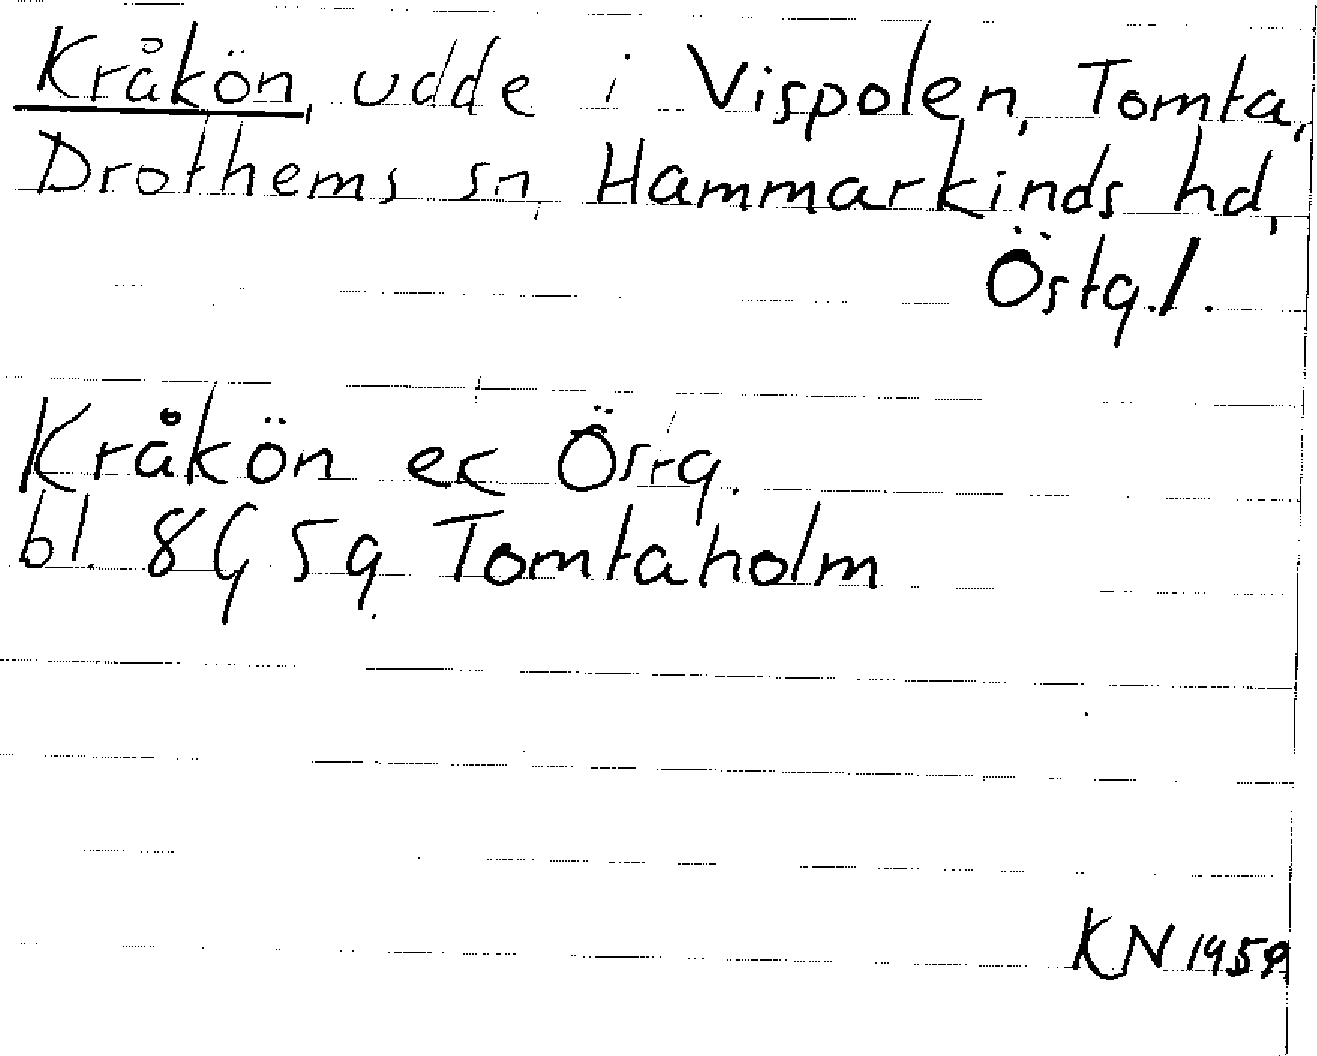 Kråkön, udde i Vispolen, Tomta,
Drothems sn, Hammarkinds hd,
Östg.l.
Kråkön ek Östg.
bl. 8G 5g Tomtaholm
KN 1959